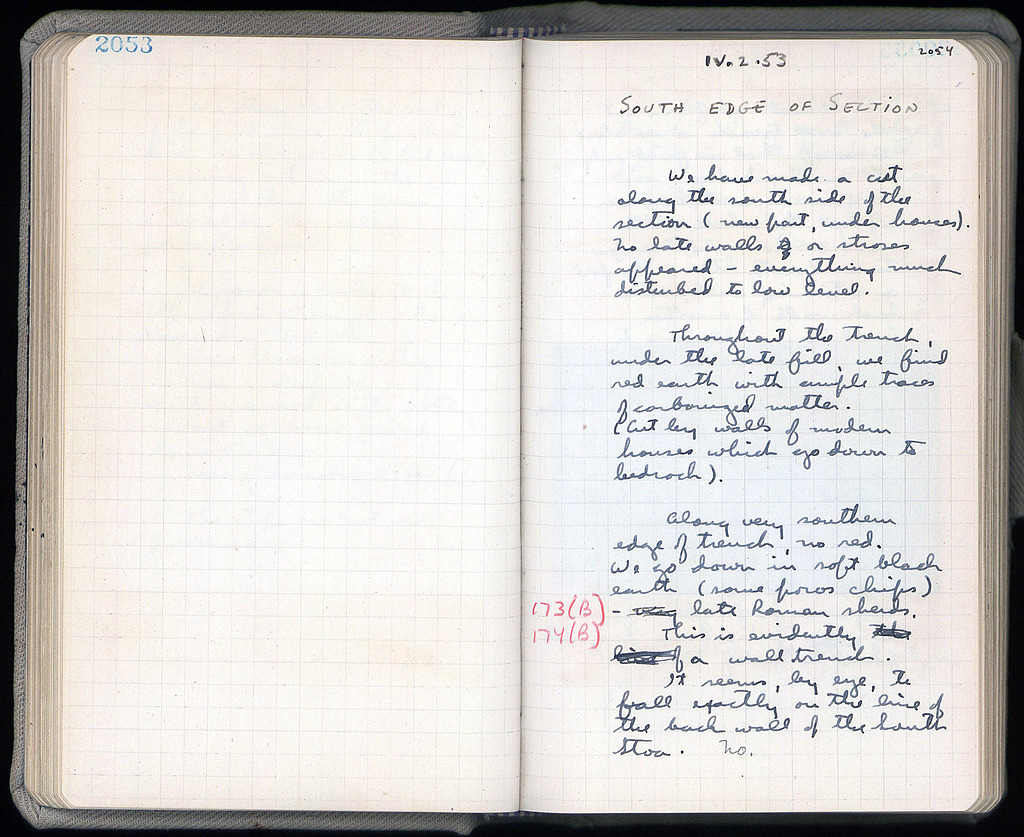 2053
2054
IV.2.53
SOUTH EDGE OF SECTION
We have made a cut
along the south side of the
section (new part, under houses).
No late walls or stroses
appeared – everything much
disturbed to low level.
Throughout the trench,
under the late fill, we find
red earth with ample traces
of carbonized matter.
(Cut by walls of modern
houses which go down to
bedrock).
Along very southern
edge of trench, no red.
We go down in soft black
earth (some poros chips)
173(B) – very late Roman sherds.
174(B) This is evidently the
line of a wall trench.
It seems, by eye, to
fall exactly on the line of
the back wall of the South
Stoa. No.